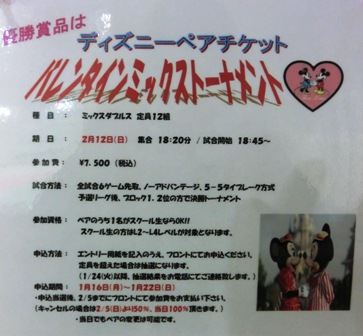 優勝賞品は
ディズニーペアチケット
バレンタインミックストーナメント
種 目： ミックスダブルス 定員12組
期 日： 2月12日(日) 集合 18:20分 / 試合開始 18:45～
参加費： ¥7,500（税込）
試合方法： 全試合6ゲーム先取、ノーアドバンテージ、5－5タイブレーク方式
予選リーグ後、ブロック1、2位の方で決勝トーナメント
参加資格： ペアのうち1名がスクール生ならOK!!
スクール生の方はL2～L4レベルが対象となります。
申込方法： エントリー用紙を記入のうえ、フロントにてお申込ください。
定員を超えた場合は抽選になります。
（1/24(火)以降、抽選結果をお電話にてご連絡致します。）
申込期間： 1月16日(月)～1月22日(日)
・申込当選後、2/5までにフロントにて参加費をお支払い下さい。
（キャンセルの場合は2/5(日)より50%、当日100%頂きます。）
・当日でもペアの変更は可能です。